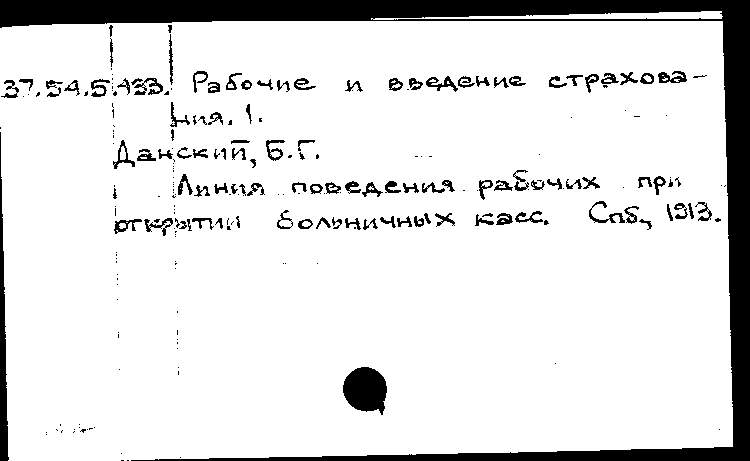 37.54.5.433. Рабочие и введение страхова-
ния. 1.
Данский, Б.Г.
Линия поведения рабочих при
открытии больничных касс. Спб., 1913.